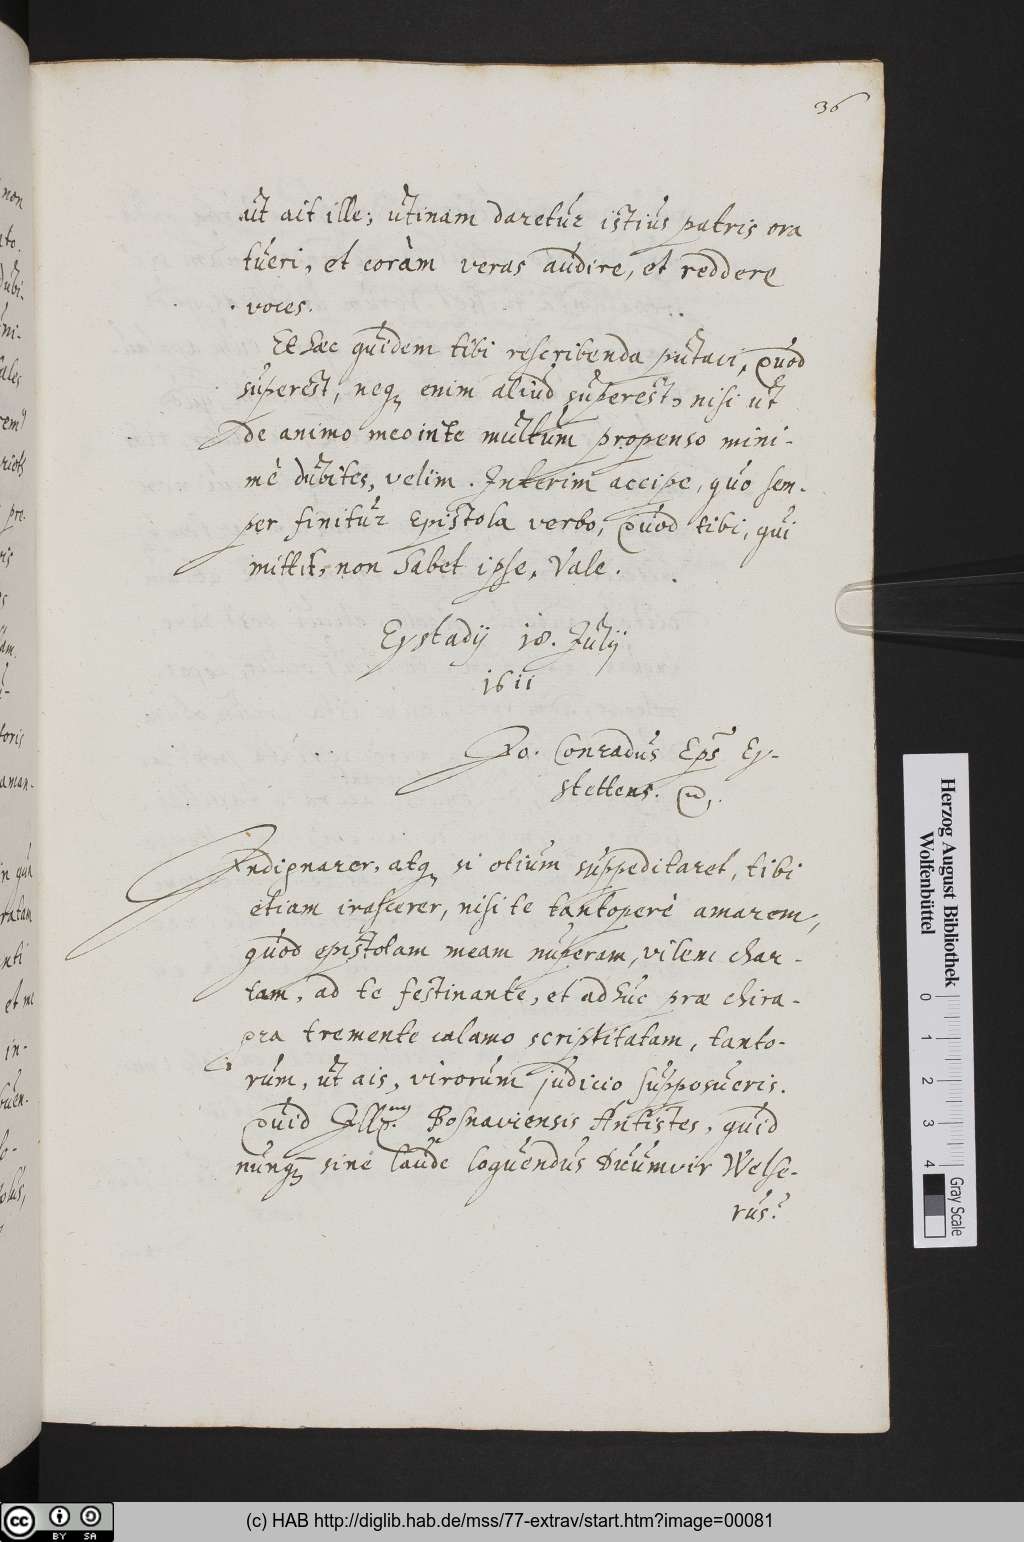 36
ut ait ille; utinam daretur istius patris ora
tueri, et coràm veras audire, et reddere
voces.
Et haec quidem tibi rescribenda putavi, quod
superest, neq enim aliud superest, nisi ut
de animo meo in te multum propenso mini-
mè dubites, velim. Interim accipe, quo sem-
per finitur Epistola verbo, quod tibi, qui
mittit, non habet ipse, Vale.
Eystadij 18. Julij
1611
Jo. Conradus Eps Ey-
stettens.
Indignarer, atq si otium suppeditaret, tibi
etiam irascerer, nisi te tantoperè amarem,
quod epistolam meam nuperam, vilem char-
tam, ad te festinante, et adhuc prae chira-
gra tremente calamo scriptitatam, tanto-
rum, ut ais, virorum judicio supposueris.
Quid Illmus Bosnaviensis Antistes, quid
nunq sine laude loquendus Duumvir Welse-
rus?
Herzog August Bibliothek
Wolfenbüttel
0 1 2 3 4
Gray Scale
(c) HAB http://diglib.hab.de/mss/77-extrav/start.htm?image=00081
cc BY SA